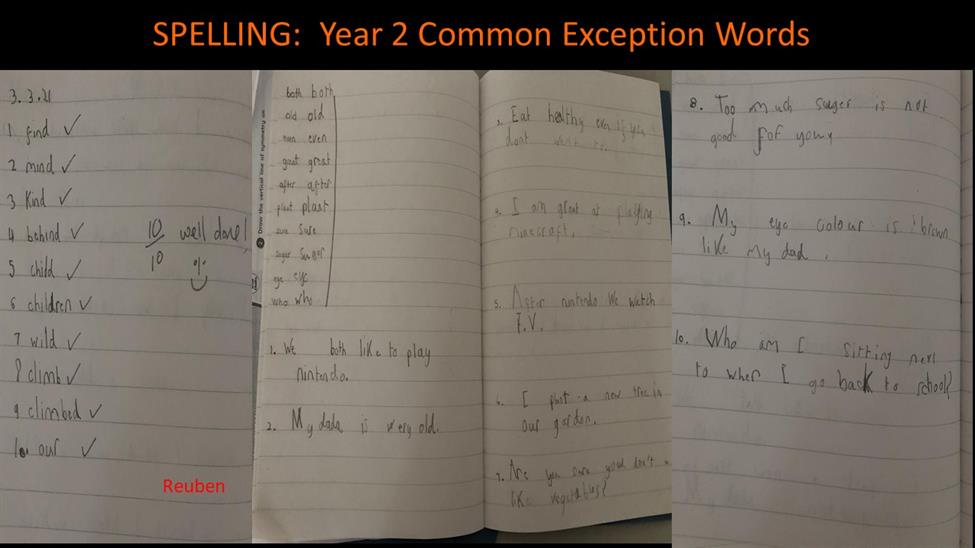 SPELLING: Year 2 Common Exception Words
3.3.21
1 find ✓
2 mind ✓
3 Kind ✓
4 behind ✓
5 child ✓
6 children ✓
7 wild ✓
8 climb ✓
9 climbed ✓
10. our ✓
10/10 well done!
Reuben
2 Draw the vertical line of symmetry on
both both
old old
even even
great great
after after
plant plast
sure Sure
sugar
eye eye
who who
1. We both like to play
nintendo.
2. My dada is very old.
3. Eat healthy even if you
dont
4. I am great at playing
minecraft.
5. After nintendo We watch
T.V.
6. I a new tree in
our garden.
7. Are you sure you don't
like vegetables?
8. Too much suger is not
good for
9. My eye colour is brown
like My dad.
10. Who am I sitting next
to when I go back to school?